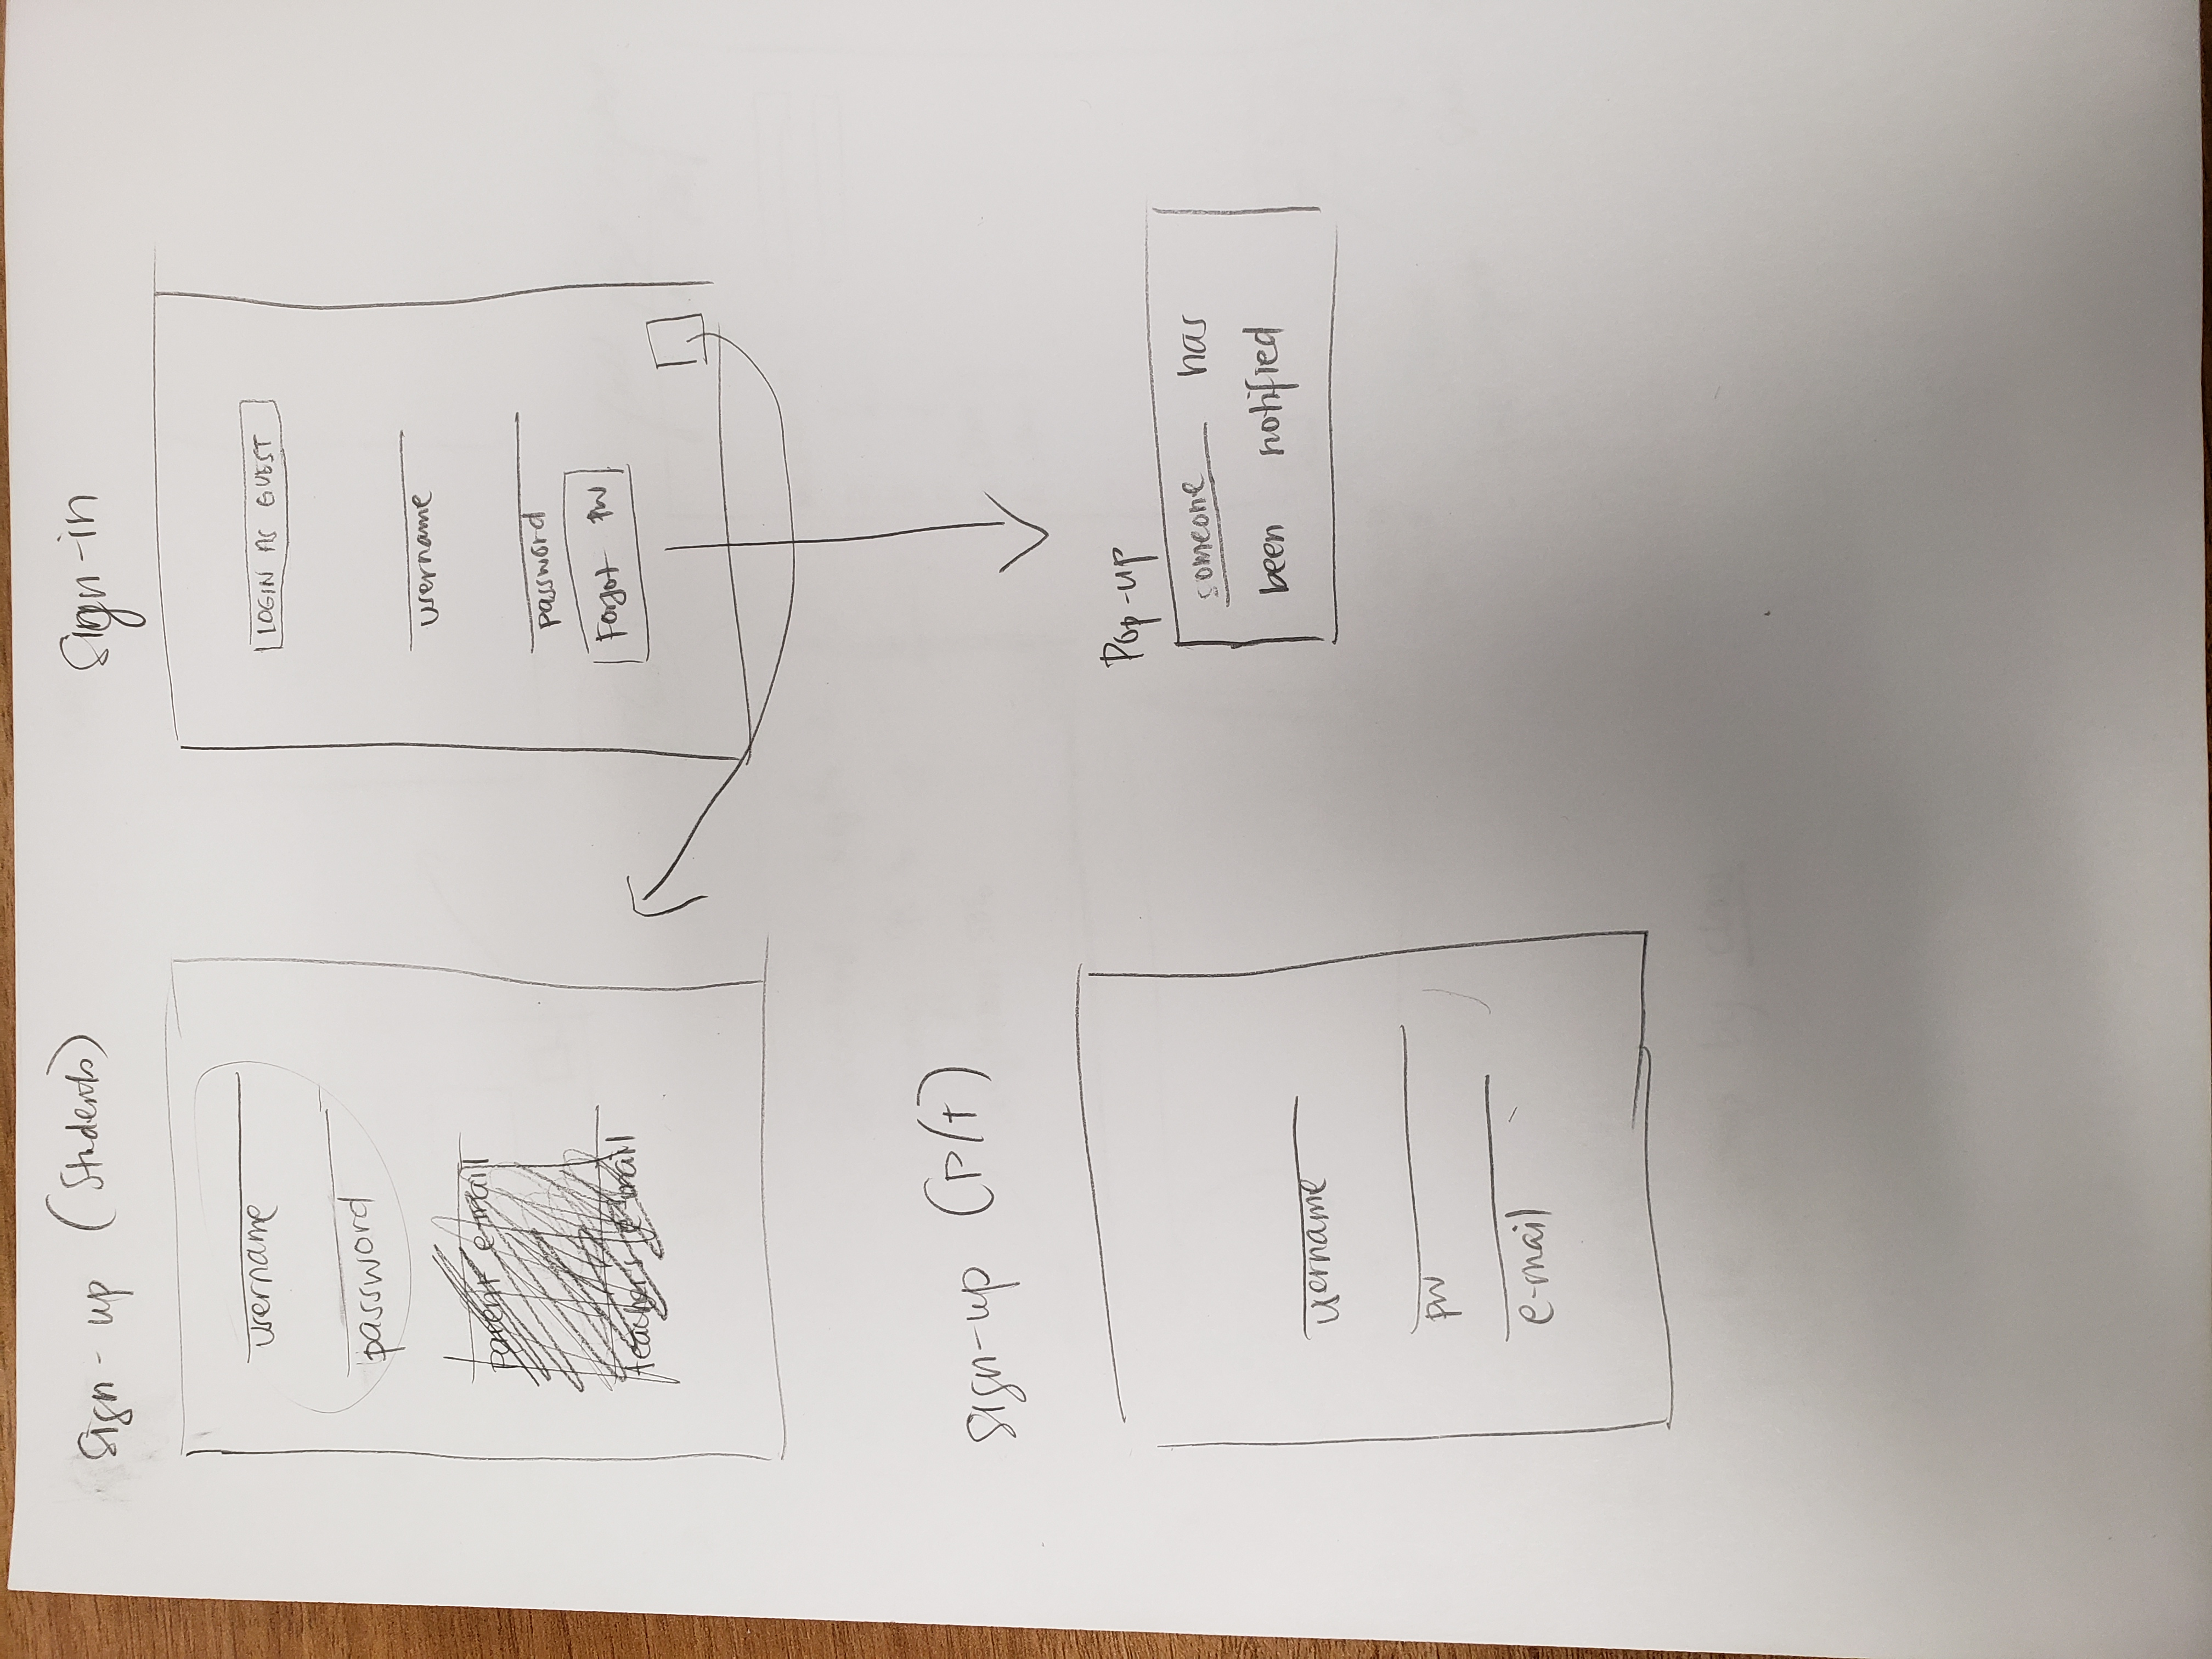 Sign-up (Students)
username
password
parent e-mail
teacher's e-mail
Sign-in
LOGIN AS GUEST
username
password
Forgot PW
Sign-up (P/T)
username
pw
e-mail
Pop-up
someone has
been notified